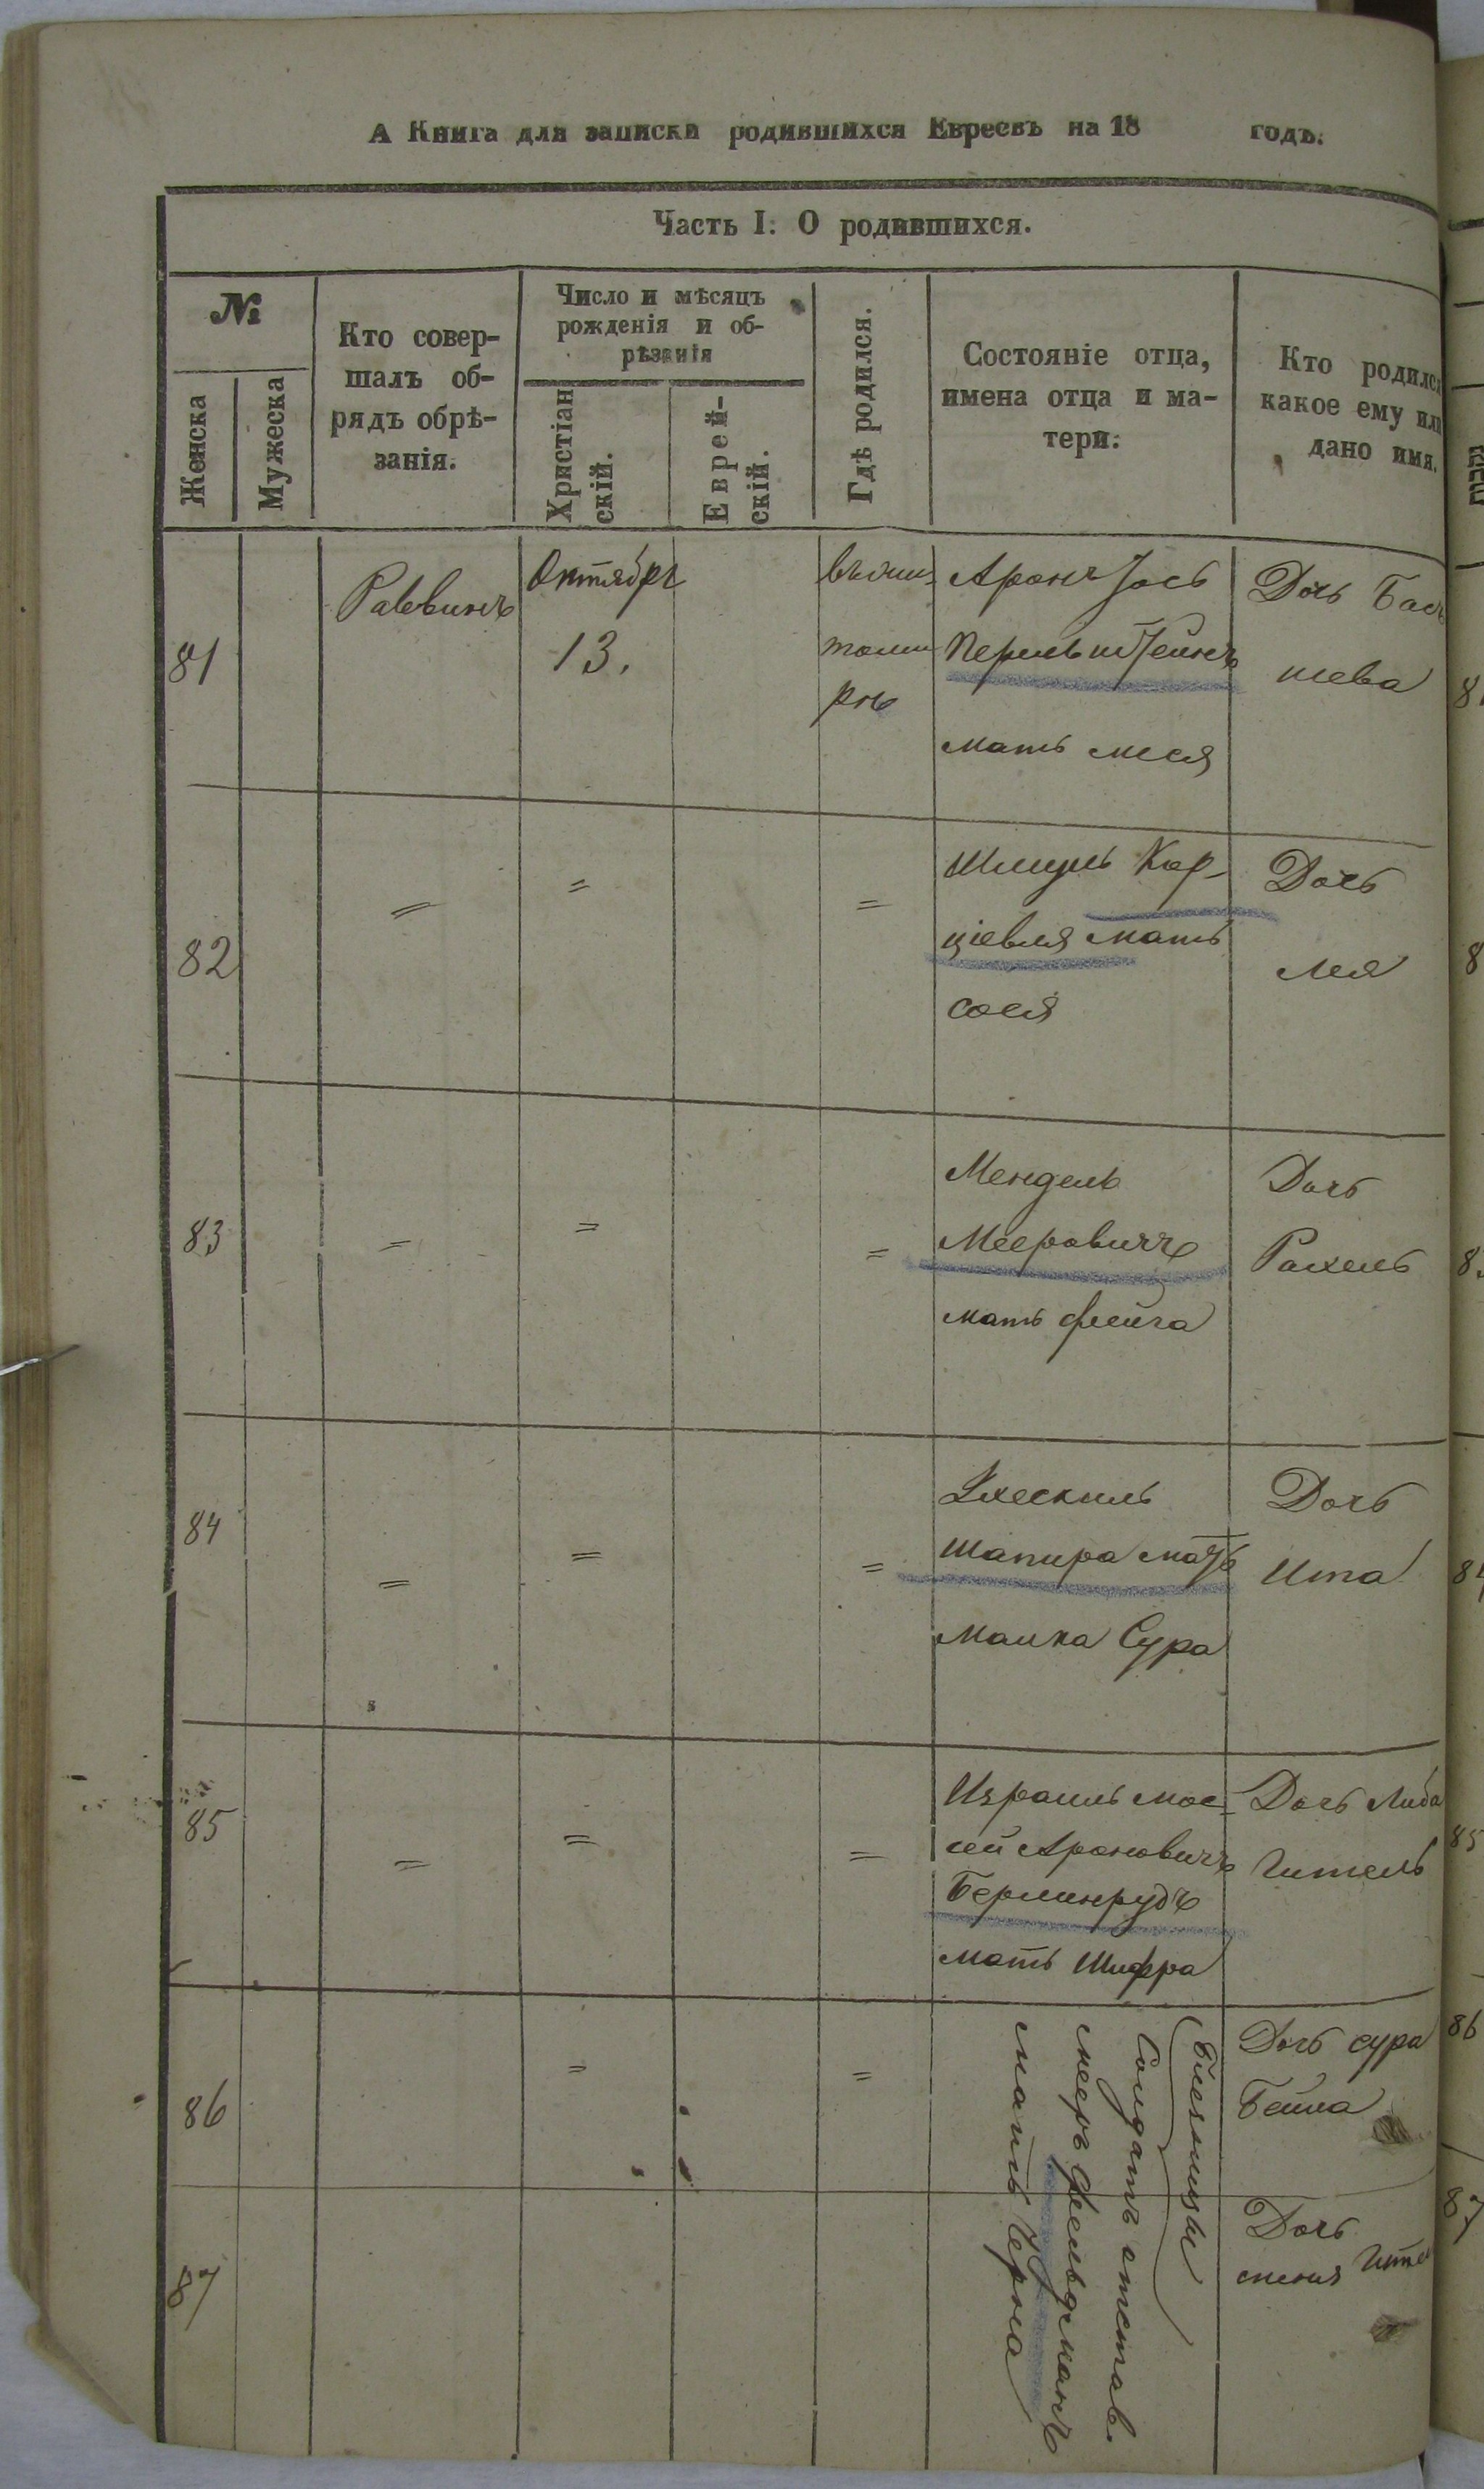 А Книга для записки родившихся Евреевъ на 18 годъ.
Часть I. О родившихся.
№
Женска
Мужеска
Кто совер-
шалъ об-
рядъ обрѣ-
занія.
Число и мѣсяцъ
рожденія и об-
рѣзанія
Христіан
скій.
Еврей-
скій.
Гдѣ родился.
Состояніе отца,
имена отца и ма-
тери.
Кто родился
какое ему или
дано имя.
81
Раввинъ
Октябрь
13.
въ жи
томи
рѣ
Аронъ Іось
Перельштейнъ
мать Меся
Дочь Бас
шева
82
=
=
=
Шмуль Кор-
мать
Сося
Дочь
Лея
83
=
=
=
Мендель
Мееровичъ
мать Фейга
Дочь
Рахель
84
=
=
=
Ихескиль
Шапира мать
Малка Сура
Дочь
Ита
85
=
=
=
Израиль Мос
сей Ароновичъ
Берлинрудъ
мать Шифра
Дочь Либа
Гитель
86
=
=
Близницы
Солдатъ отстав.
Мееръ Фельдманъ
мать Черна
Дочь Сура
Бейла
87
Дочь
81
8
83
84
85
86
87